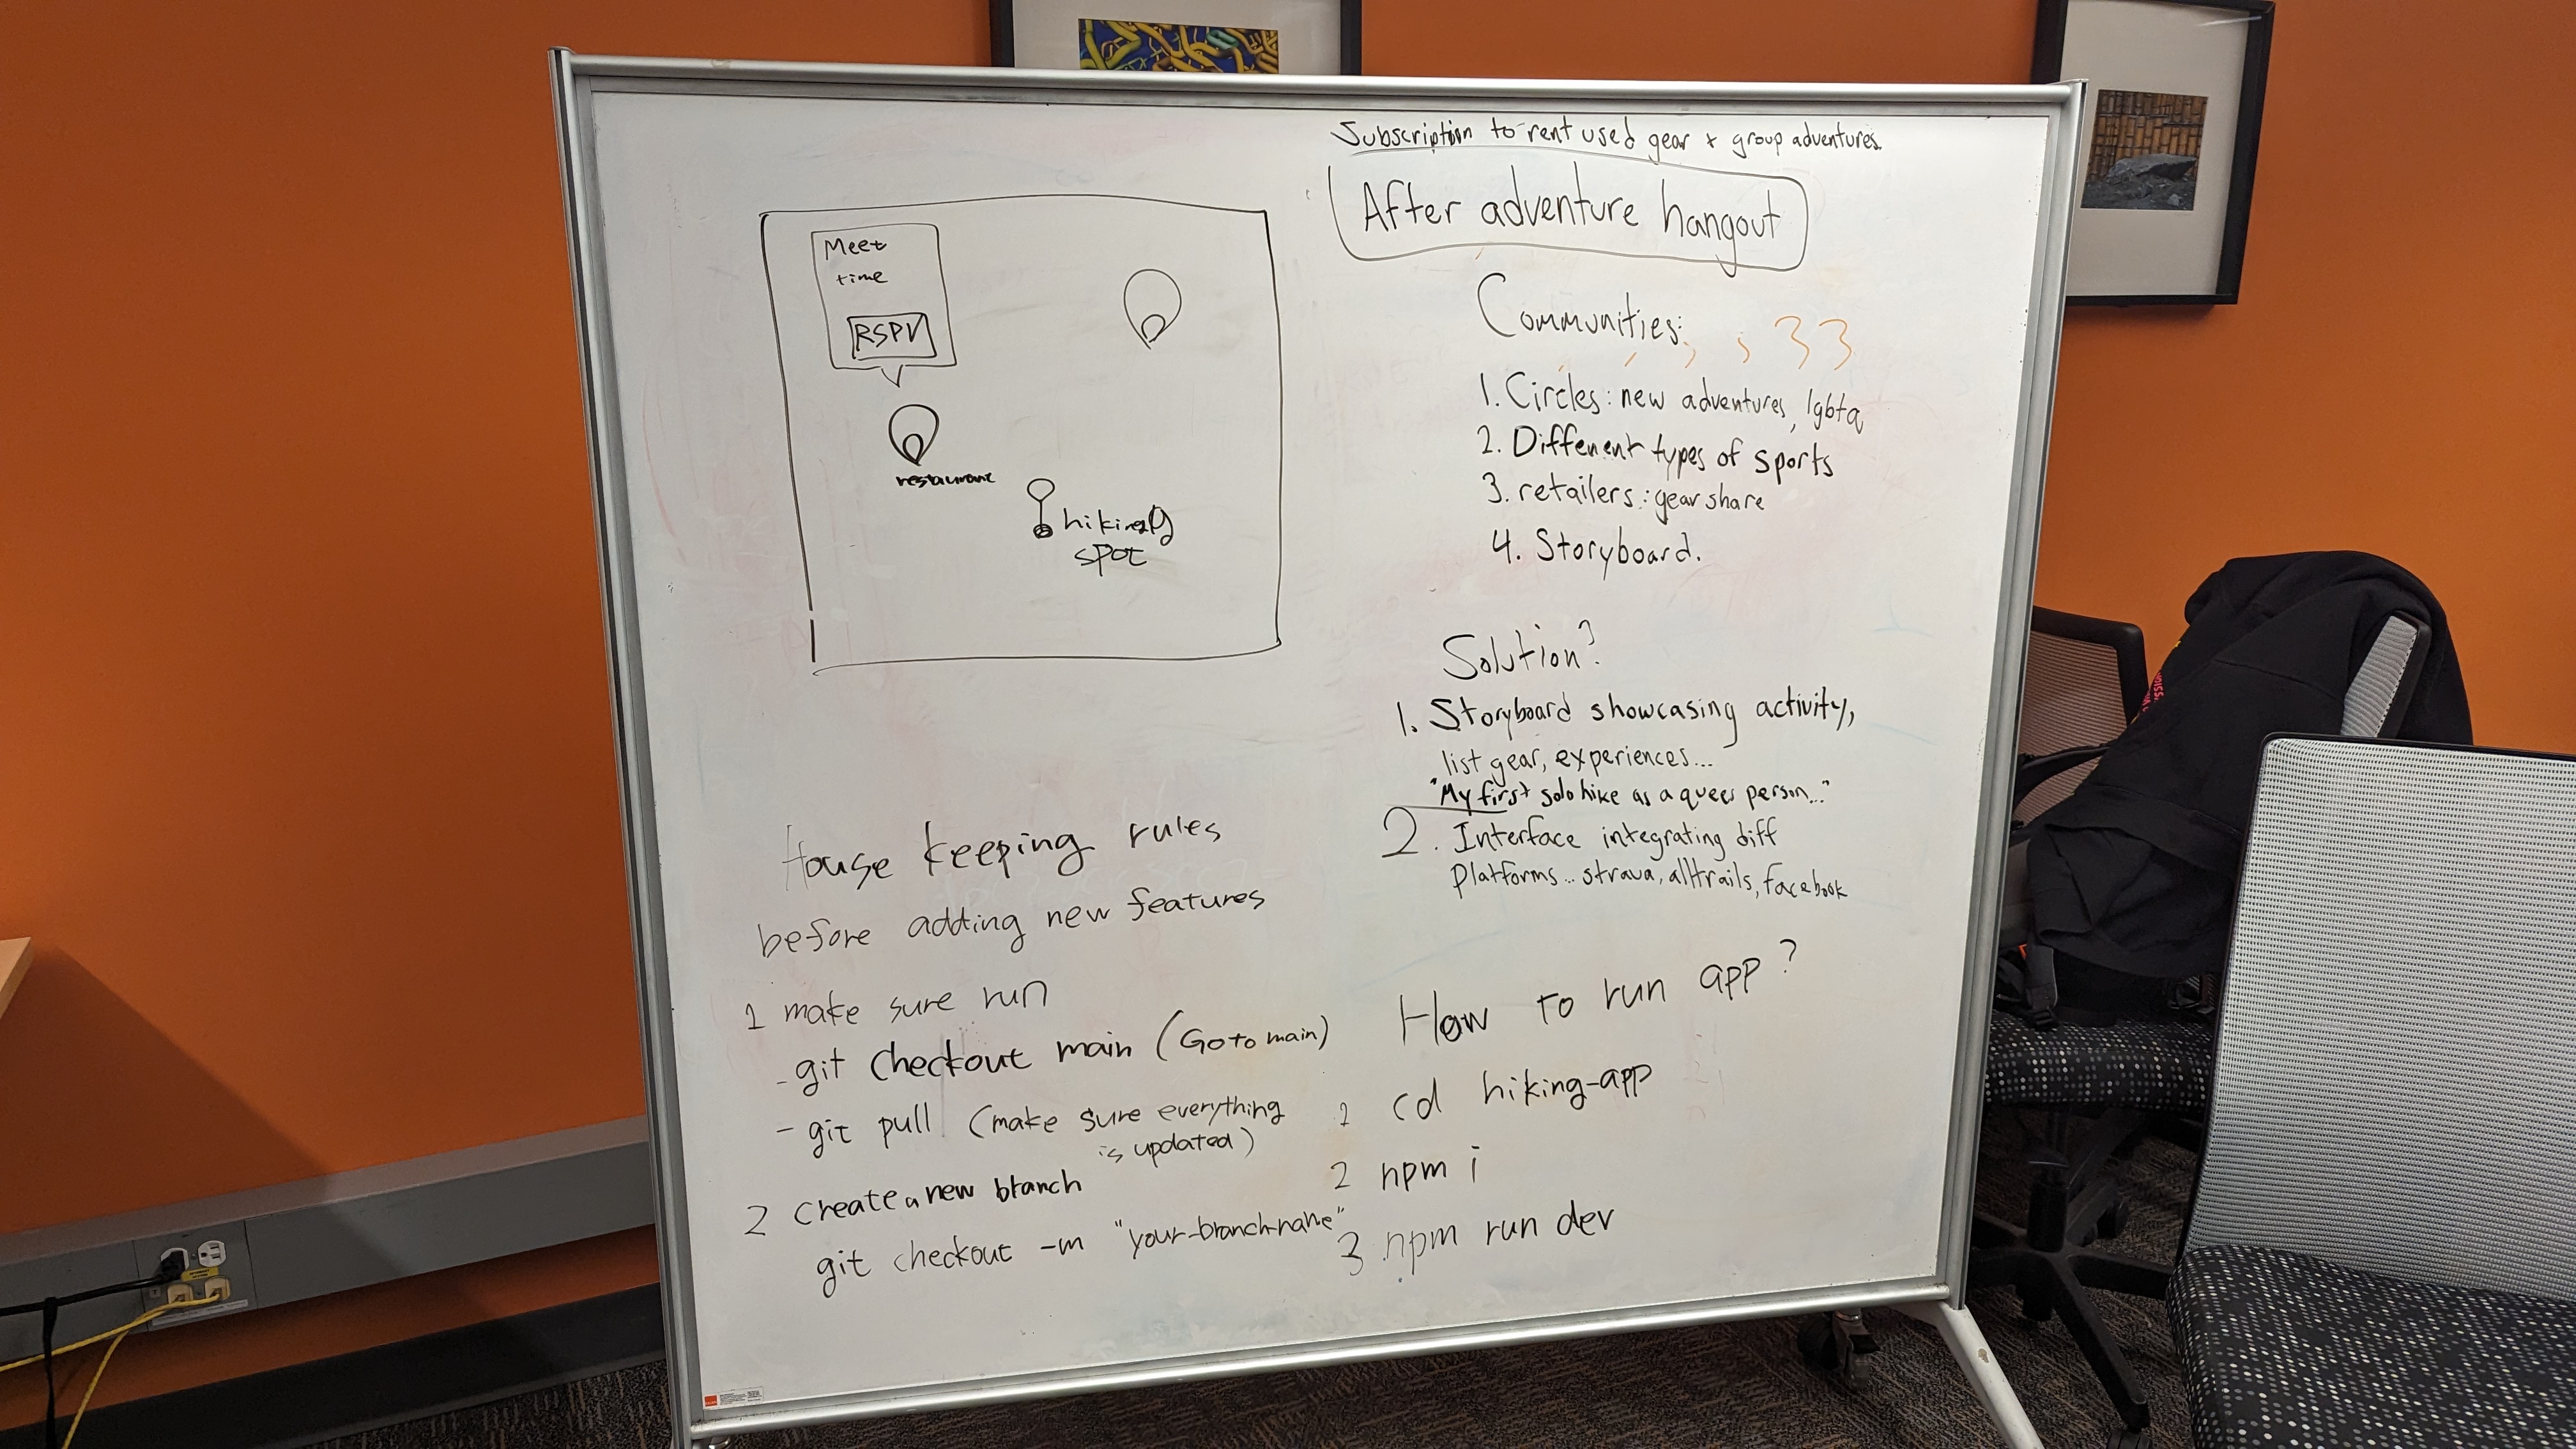 Subscription to rent used gear + group adventures.
After adventure hangout
Meet
time
RSPV
restaurant
hiking
spot
Communities:
1. Circles: new adventures, lgbtq
2. Different types of sports
3. retailers: gear share
4. Storyboard.
Solution?
1. Storyboard showcasing activity,
list gear, experiences...
"My first solo hike as a queer person..."
2. Interface integrating diff
Platforms... strava, alltrails, facebook
House keeping rules
before adding new features
1 make sure run
- git checkout main (Go to main)
- git pull (make sure everything
is updated)
2 create a new branch
git checkout -m "your-branch-name"
How to run app?
1 cd hiking-app
2 npm i
3 npm run dev